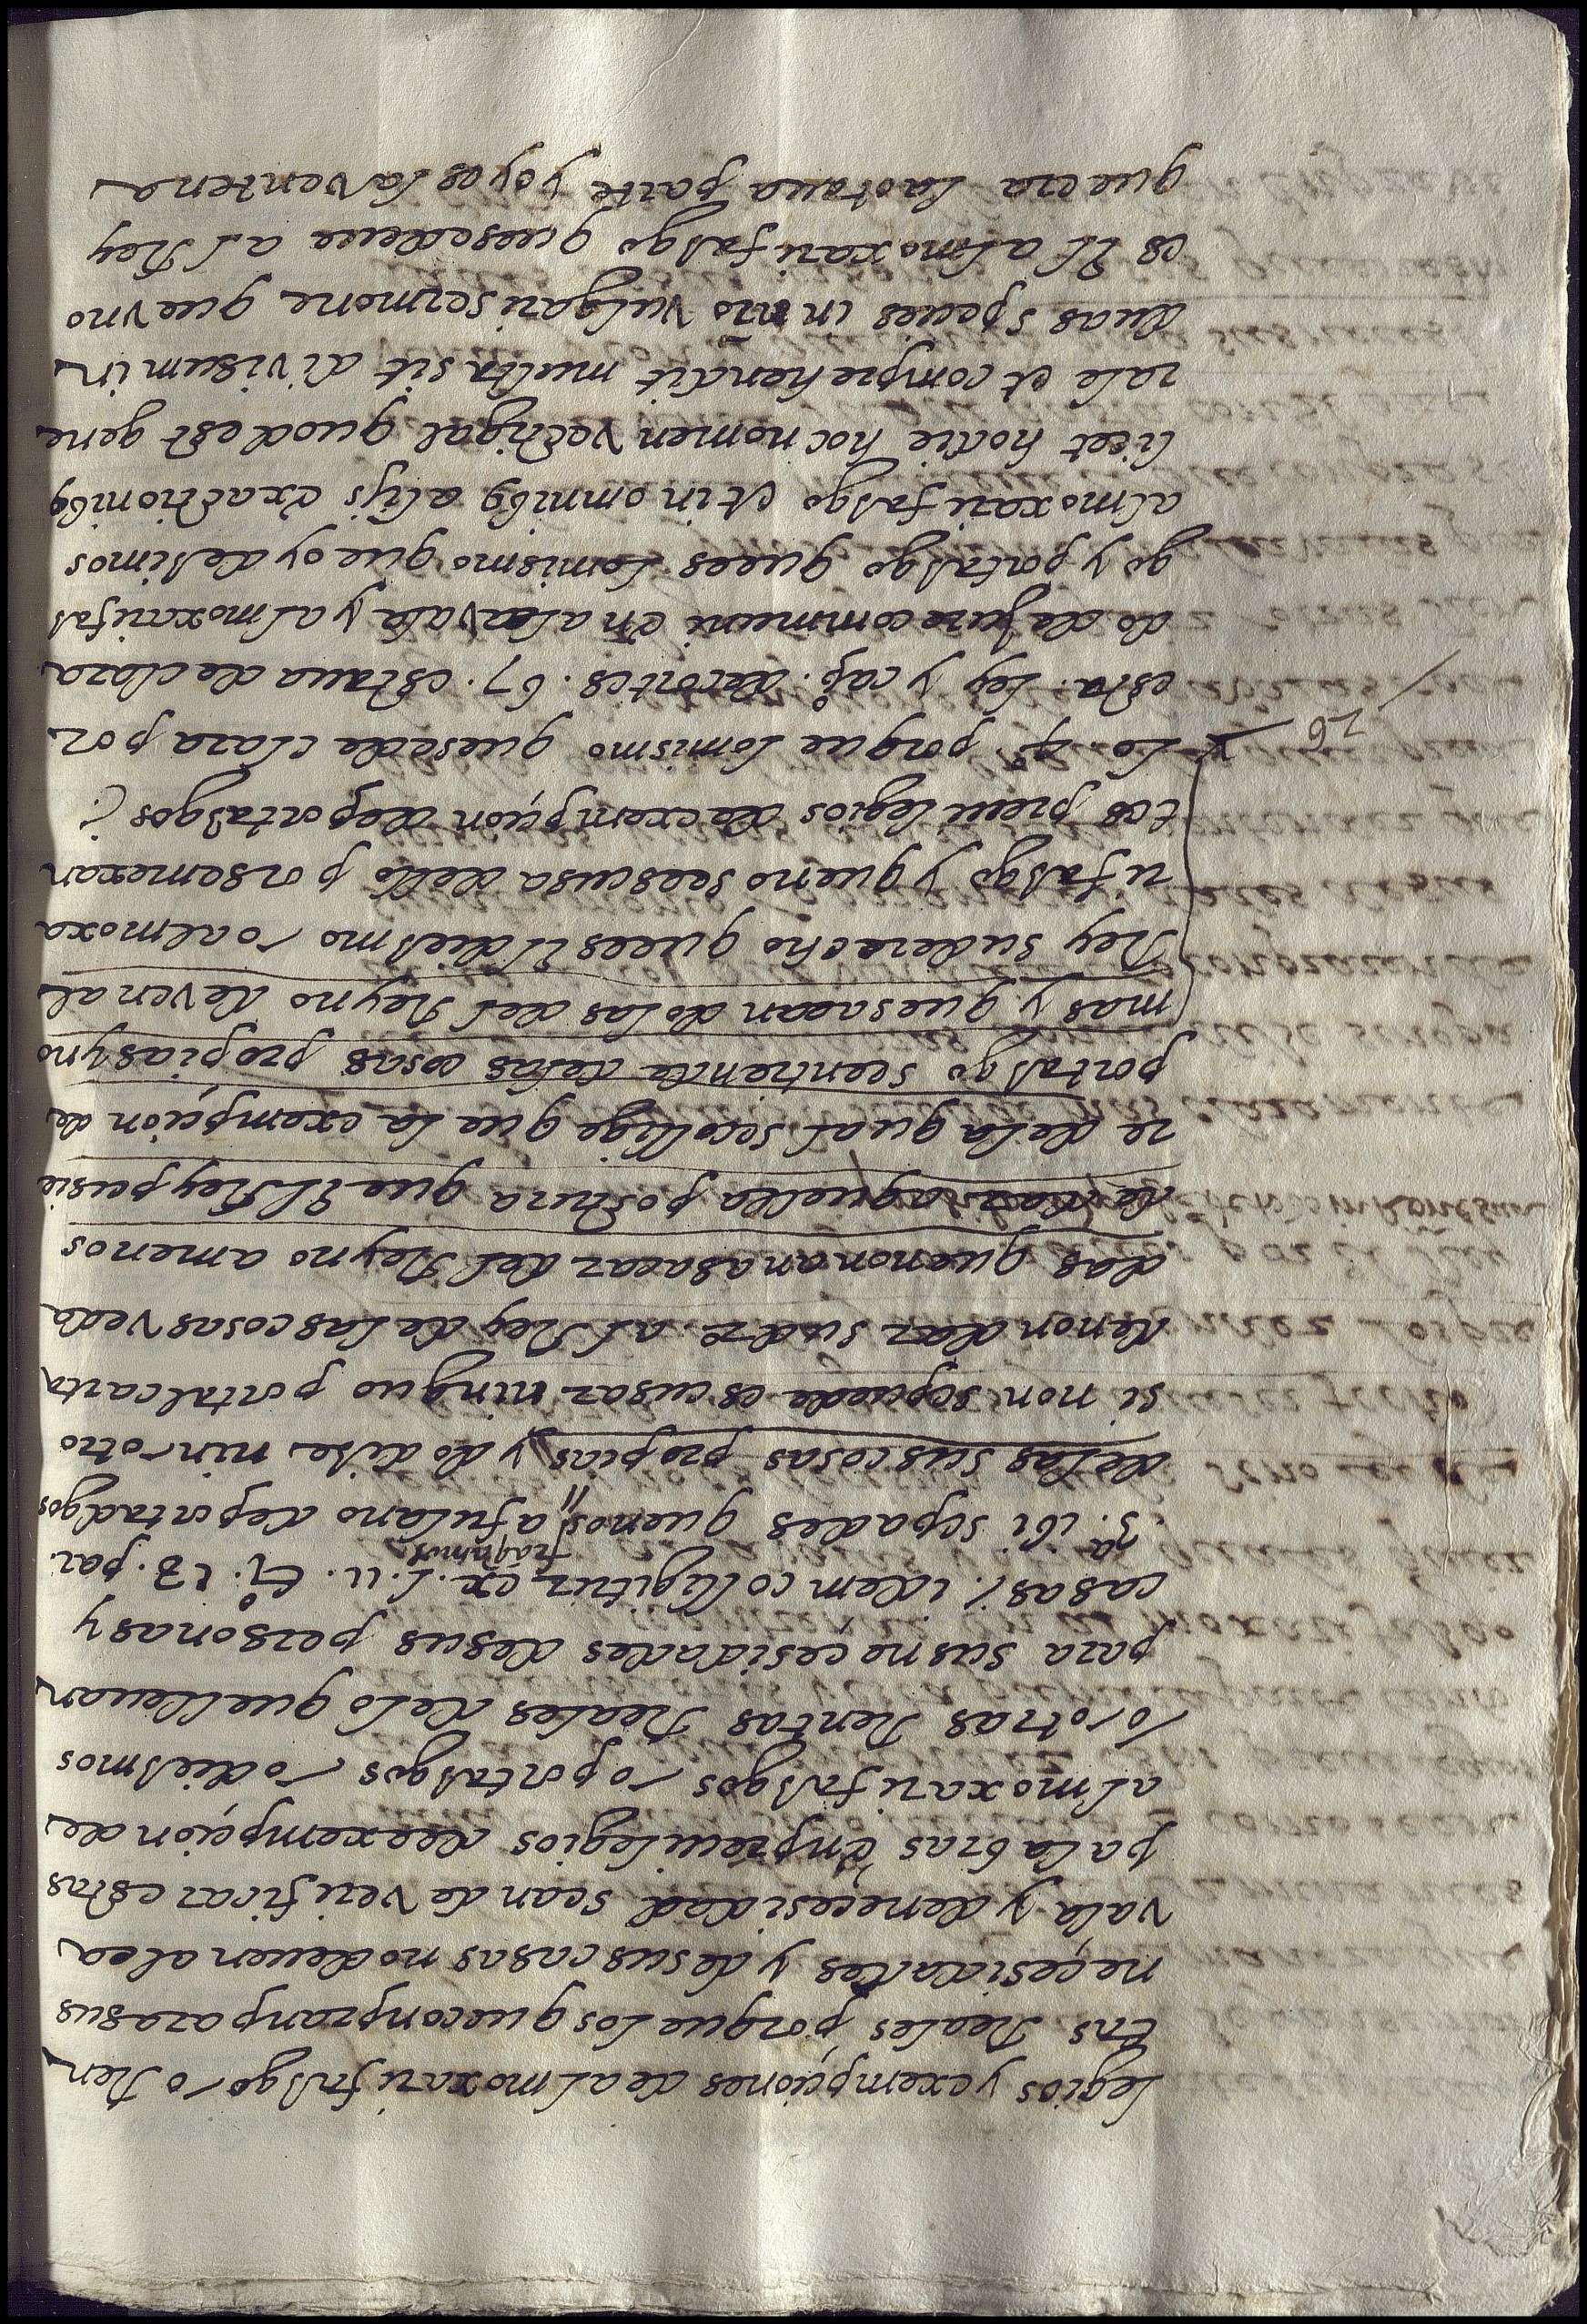 legios y exempçiones de almoxarifasgo / o Ren
tas Reales porque los que conpran para sus
neçesidades y de sus casas no deuen alca
vala y de neçesidad sean de verificar estas
palabras en preuilegios de exempçion de
almoxarifasgos / o portasgos / o diesmos
/ o / otras Rentas Reales de lo que lleuan
para sus neçesidades de sus personas y
casas /. idem colligitur ex. l. 11. tº. 18. par
3. ibi sepades que nos franqueamos a fulano de portadgos
de las sus cosas propias y do dise nin / otro
si non se puede escusar ninguo por tal carta
de non dar su dro. al Rey de las cosas veda
das que non an a sacar del Reyno a menos
de dar aquella postura que el Rey pusie
re de la qual se collige que la exempçion de
portasgo se entiende de las cosas propias y no
mas y que sacandolas del Reyno deven al
Rey su derecho que es el diesmo / o almoxa
rifasgo y que no se escusa dello por semexan
tes preuilegios de exempçion de portasgos /.
26
Lo 4º. porque lo mismo que se declara por
esta. ley y capº. de cortes. 67. estaua declara
do de jure communi en alcavala y almoxarifas
go y portasgo que es lo mismo que oy desimos
almoxarifasgo et in omnibus alijs exactionibus
licet hodie hoc nomen vectigal quod est gene
rale et comprehendit multa sit divisum in
duas species in nro vulgari sermone que vno
es El almoxarifasgo que se deue al Rey
que era la otaua parte y oy es la ventena